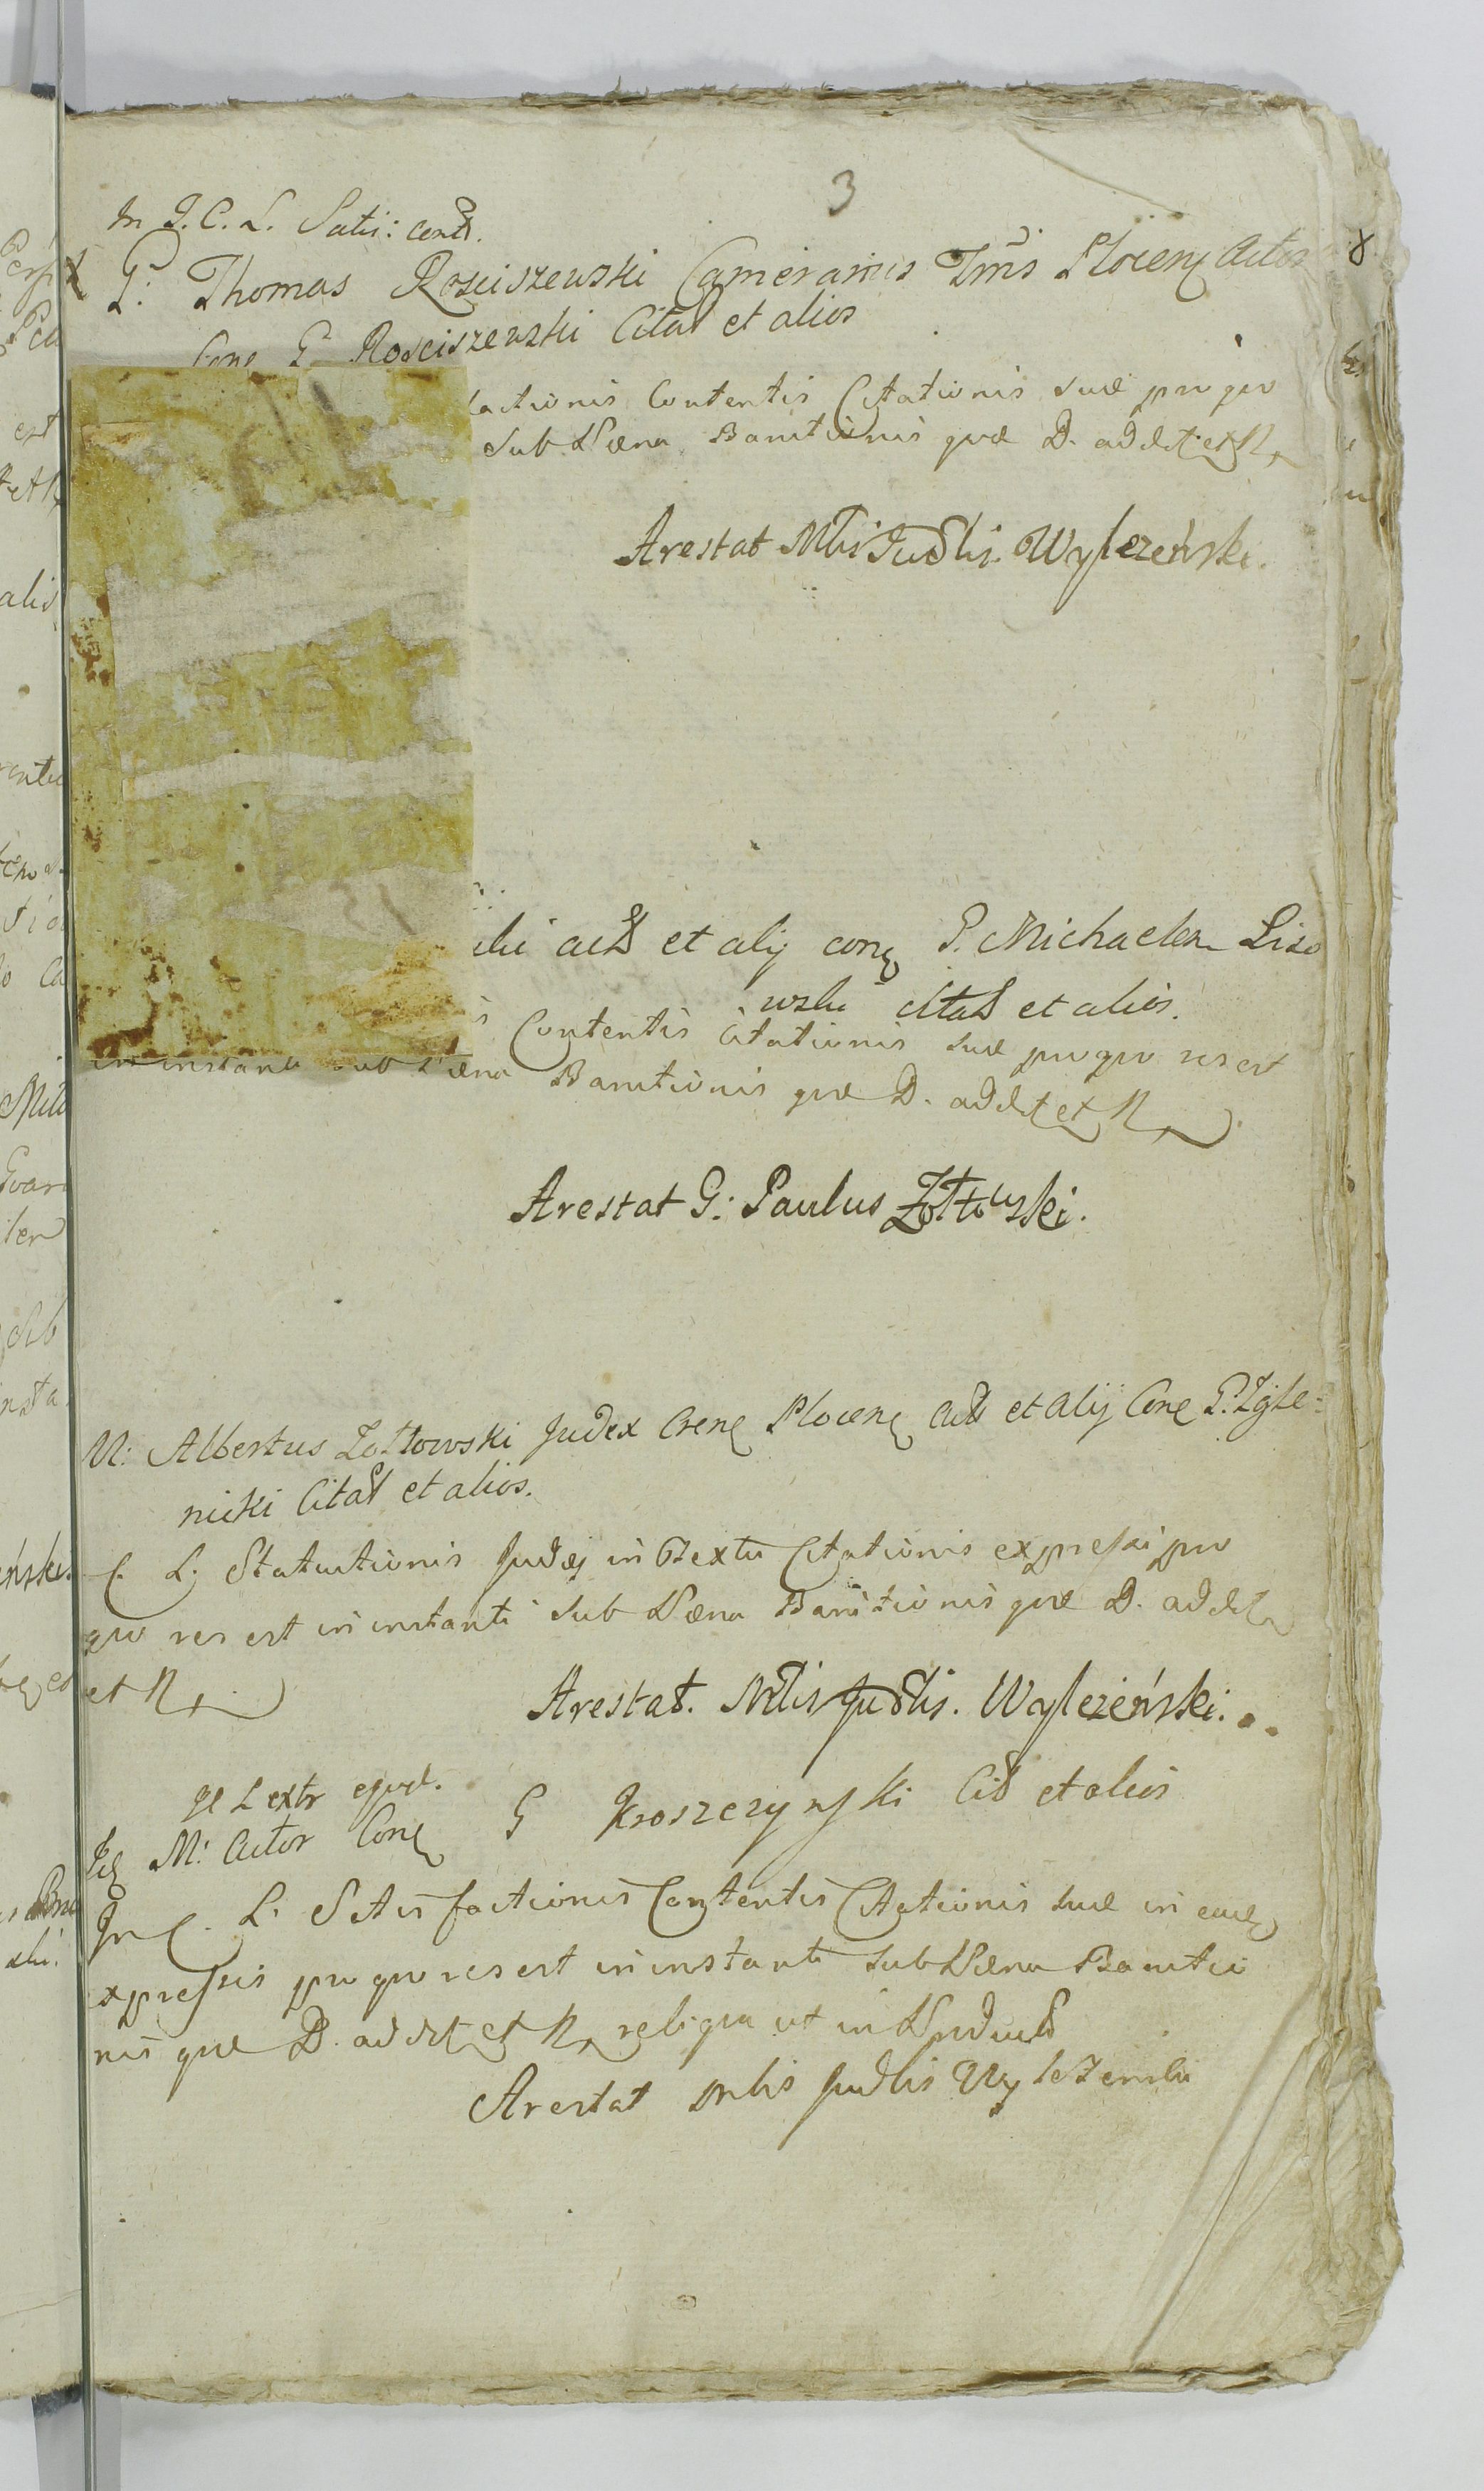 3
In J. C. L. Satis: cont.
G: Thomas Rosciszewski Camerarius Trnis Plocen Actor
Con G Rosciszewski Citat et alios
factionis Contentis Citationis suæ pro quo
sub Pæna Banitionis quæ D. ad dst et N
Arestat Mlis Judlis. Wylezeński.
ski act et alij con P. Michaelem Liso
wski Citat et alios.
Contentis Citationis suæ pro quo res est
in instanti sub Pæna Banitionis quæ D. ad dst et N
Arestat G: Paulus Zołtowski.
M: Albertus Zołtowski Judex Cren Plocen act et alij Con G. Zgle=
nicki Citat et alios.
C. L. Statuitionis Judæj in Textu Citationis expressi pro
quo res est in instanti sub Pæna Banitionis quæ D. ad dst
et N
Arestat. Mlis Judlis. Wylezeński.
M: Actor Con G Kroszczynski Cit et alios
In C. L. Satisfactionis Contentis Citationis suæ in eade
expressis pro quo res est in instanti sub Pæna Banitio
nis quæ D. ad dst et N reliqua ut in
Arestat Mlis Judlis Wylezenski